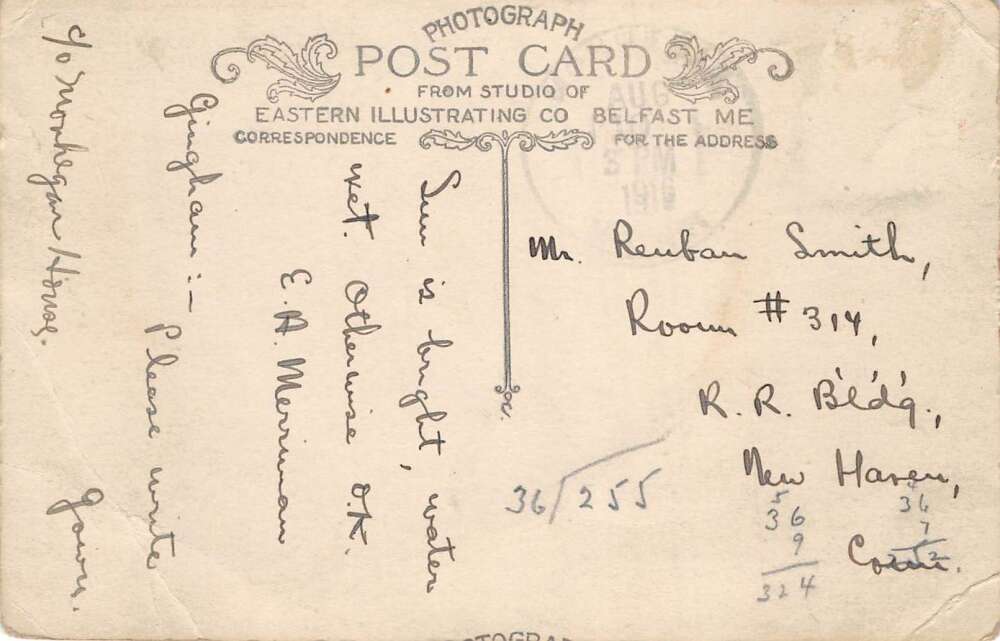 PHOTOGRAPH
POST CARD
FROM STUDIO OF
EASTERN ILLUSTRATING CO BELFAST ME
CORRESPONDENCE
FOR THE ADDRESS
AUG
5 PM
1916
c/o Monhegan House.
Gingham:-
Please write
yours.
Sun is bright, water
wet. Otherwise O.K.
E. A. Merriman
Mr. Reuban Smith,
Room #314,
R. R. Bldg.,
New Haven,
Conn.
36/255
5
36
9
324
4
36
7
252